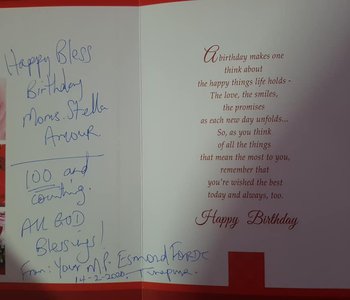 Happy Bless
Birthday
Moms. Stella
Amour
100 and
counting.
All GOD
Blessings!
From: Your MP. Esmond FORDE
14-2-2020, Tunapuna.
A birthday makes one
think about
the happy things life holds -
The love, the smiles,
the promises
as each new day unfolds...
So, as you think
of all the things
that mean the most to you,
remember that
you're wished the best
today and always, too.
Happy Birthday